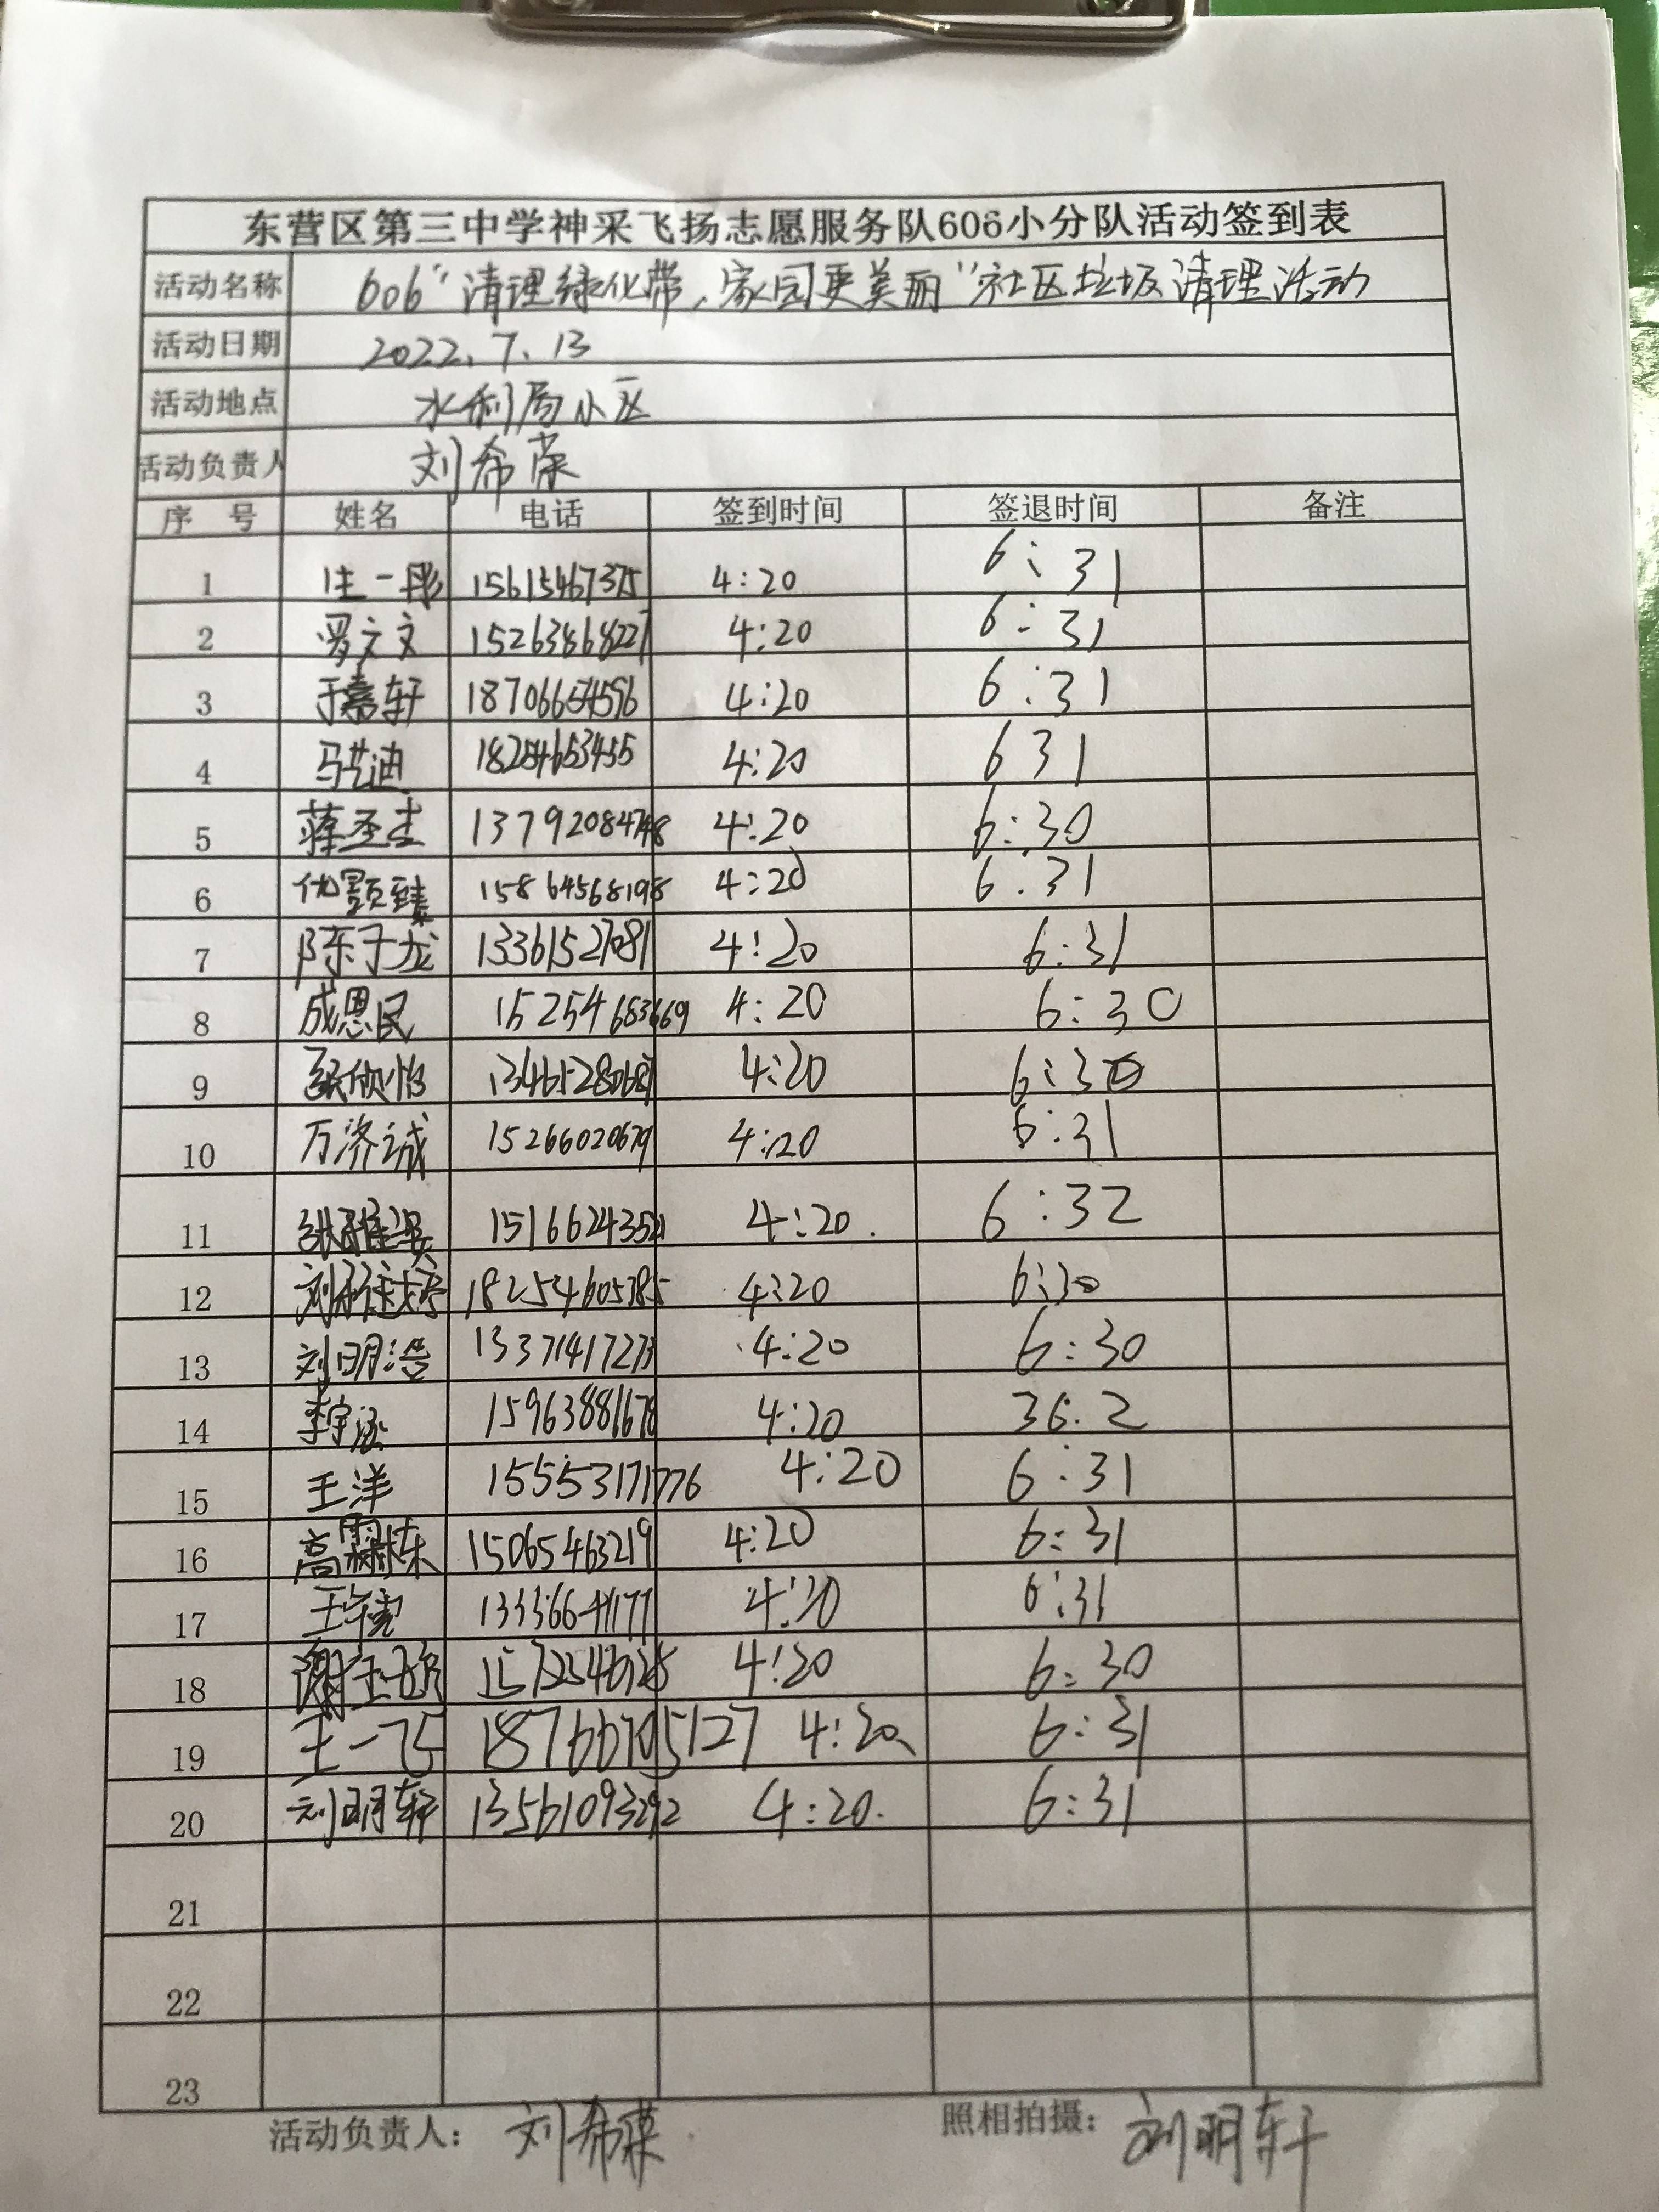 东营区第三中学神采飞扬志愿服务队606小分队活动签到表
活动名称 606"清理绿化带、家园更美丽"社区垃圾清理活动
活动日期 2022.7.13
活动地点 水利局小区
活动负责人 刘希荣
序 号 姓名 电话 签到时间 签退时间 备注
1 一彤 15615467375 4:20 6:31
2 文 15263868227 4:20 6:31
3 于嘉轩 18706654596 4:20 6:31
4 马艺迪 18254653455 4:20 6 31
5 蒋圣杰 13792084748 4:20 6:30
6 15864568198 4:20 6:31
7 陈子龙 13361527081 4:20 6:31
8 成恩民 15254683669 4:20 6:30
9 欣怡 13465280687 4:20 6:30
10 万济诚 15266020679 4:20 6:31
11 张雅淇 15166243521 4:20. 6:32
12 刘 18254605785 4:20 6:30
13 刘明浩 13371417273 4:20 6:30
14 李宇泓 15963881678 4:20 36:2
15 王洋 15553171776 4:20 6:31
16 高霖栋 15065463219 4:20 6:31
17 王 13336641177 4:20 6:31
18 谢玉 4:20 6:30
19 王一飞 18766705127 4:20、 6:31
20 刘明轩 13561093292 4:20. 6:31
21
22
23
活动负责人： 刘希荣 照相拍摄： 刘明轩